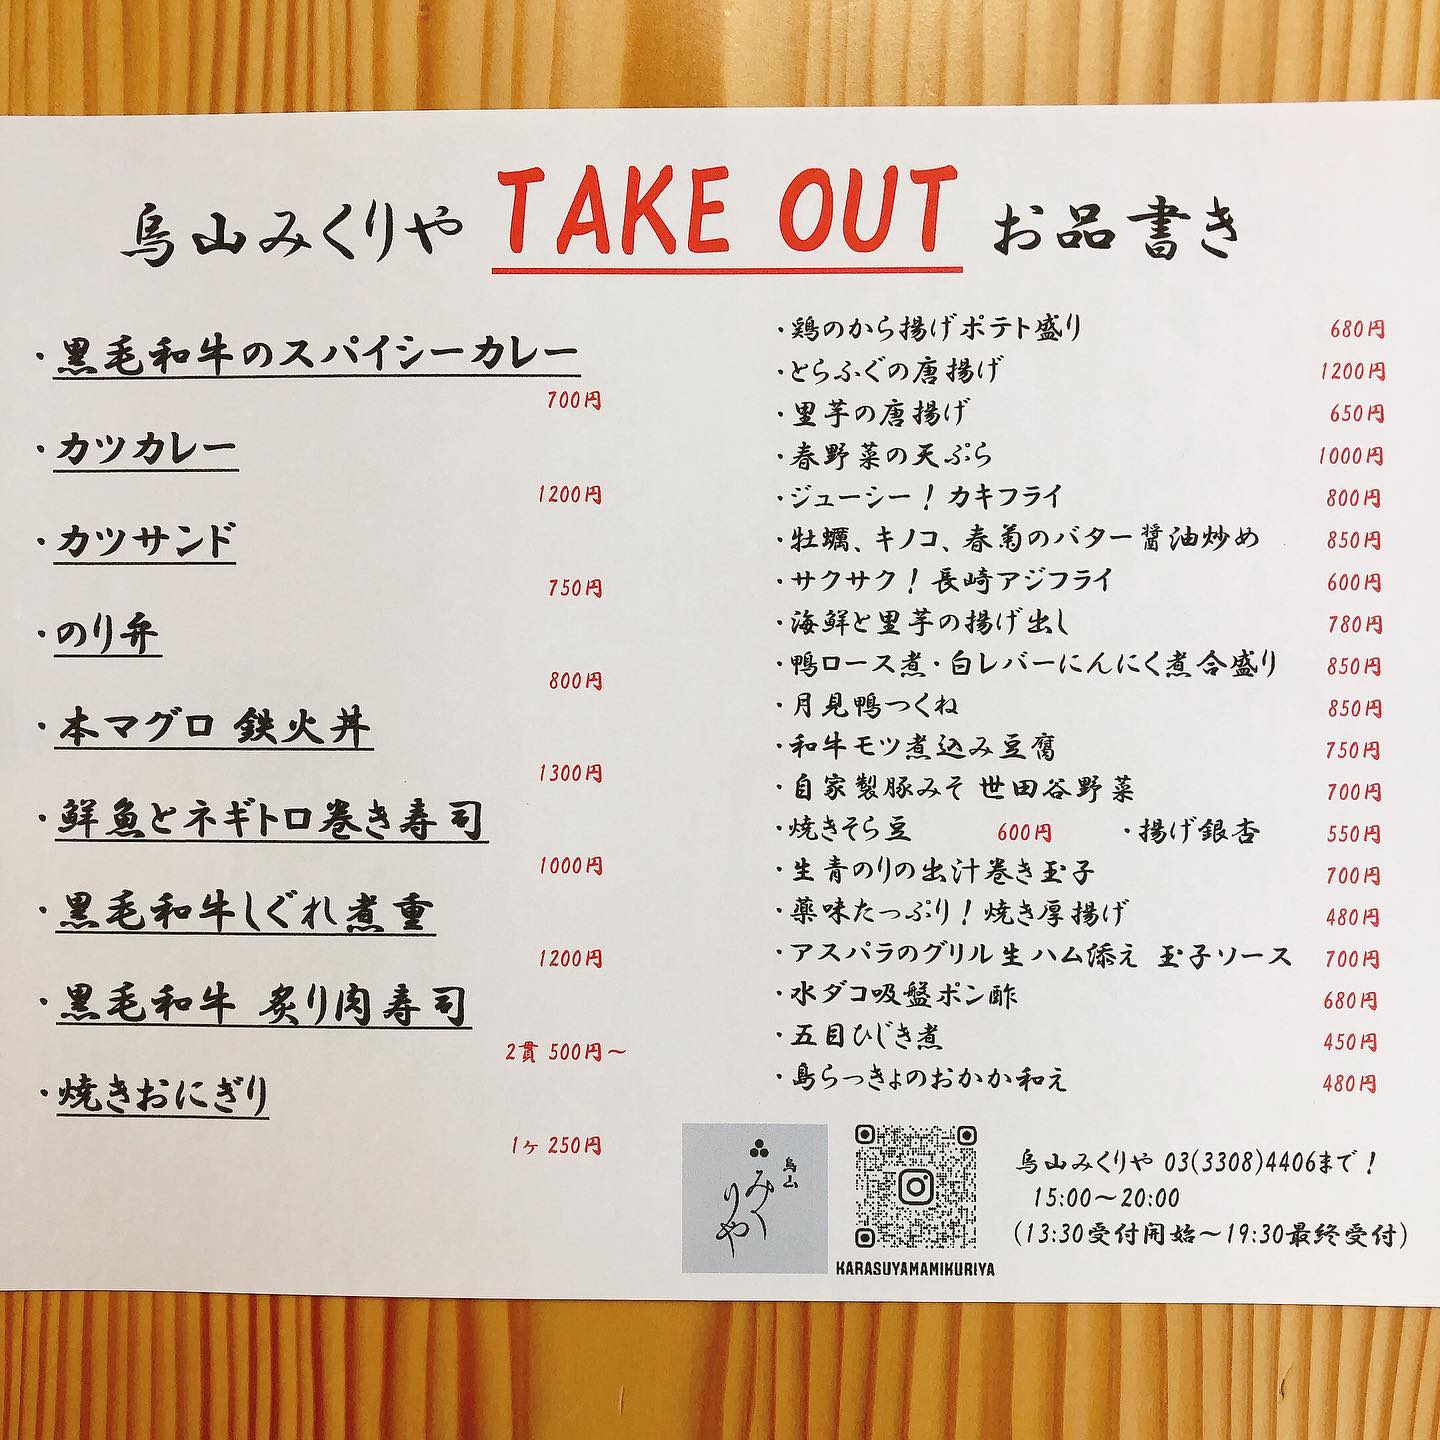 烏山みくりや TAKE OUT お品書き
・黒毛和牛のスパイシーカレー
700円
・カツカレー
1200円
・カツサンド
750円
・のり弁
800円
・本マグロ 鉄火丼
1300円
・鮮魚とネギトロ巻き寿司
1000円
・黒毛和牛しぐれ煮重
1200円
・黒毛和牛 炙り肉寿司
2貫 500円〜
・焼きおにぎり
1ヶ 250円
・鶏のから揚げポテト盛り 680円
・とらふぐの唐揚げ 1200円
・里芋の唐揚げ 650円
・春野菜の天ぷら 1000円
・ジューシー！カキフライ 800円
・牡蠣、キノコ、春菊のバター醤油炒め 850円
・サクサク！長崎アジフライ 600円
・海鮮と里芋の揚げ出し 780円
・鴨ロース煮・白レバーにんにく煮合盛り 850円
・月見鴨つくね 850円
・和牛モツ煮込み豆腐 750円
・自家製豚みそ 世田谷野菜 700円
・焼きそら豆 600円 ・揚げ銀杏 550円
・生青のりの出汁巻き玉子 700円
・薬味たっぷり！焼き厚揚げ 480円
・アスパラのグリル生ハム添え 玉子ソース 700円
・水ダコ吸盤ポン酢 680円
・五目ひじき煮 450円
・島らっきょのおかか和え 480円
烏山
みくりや
KARASUYAMAMIKURIYA
烏山みくりや 03(3308)4406まで！
15:00〜20:00
(13:30受付開始〜19:30最終受付)